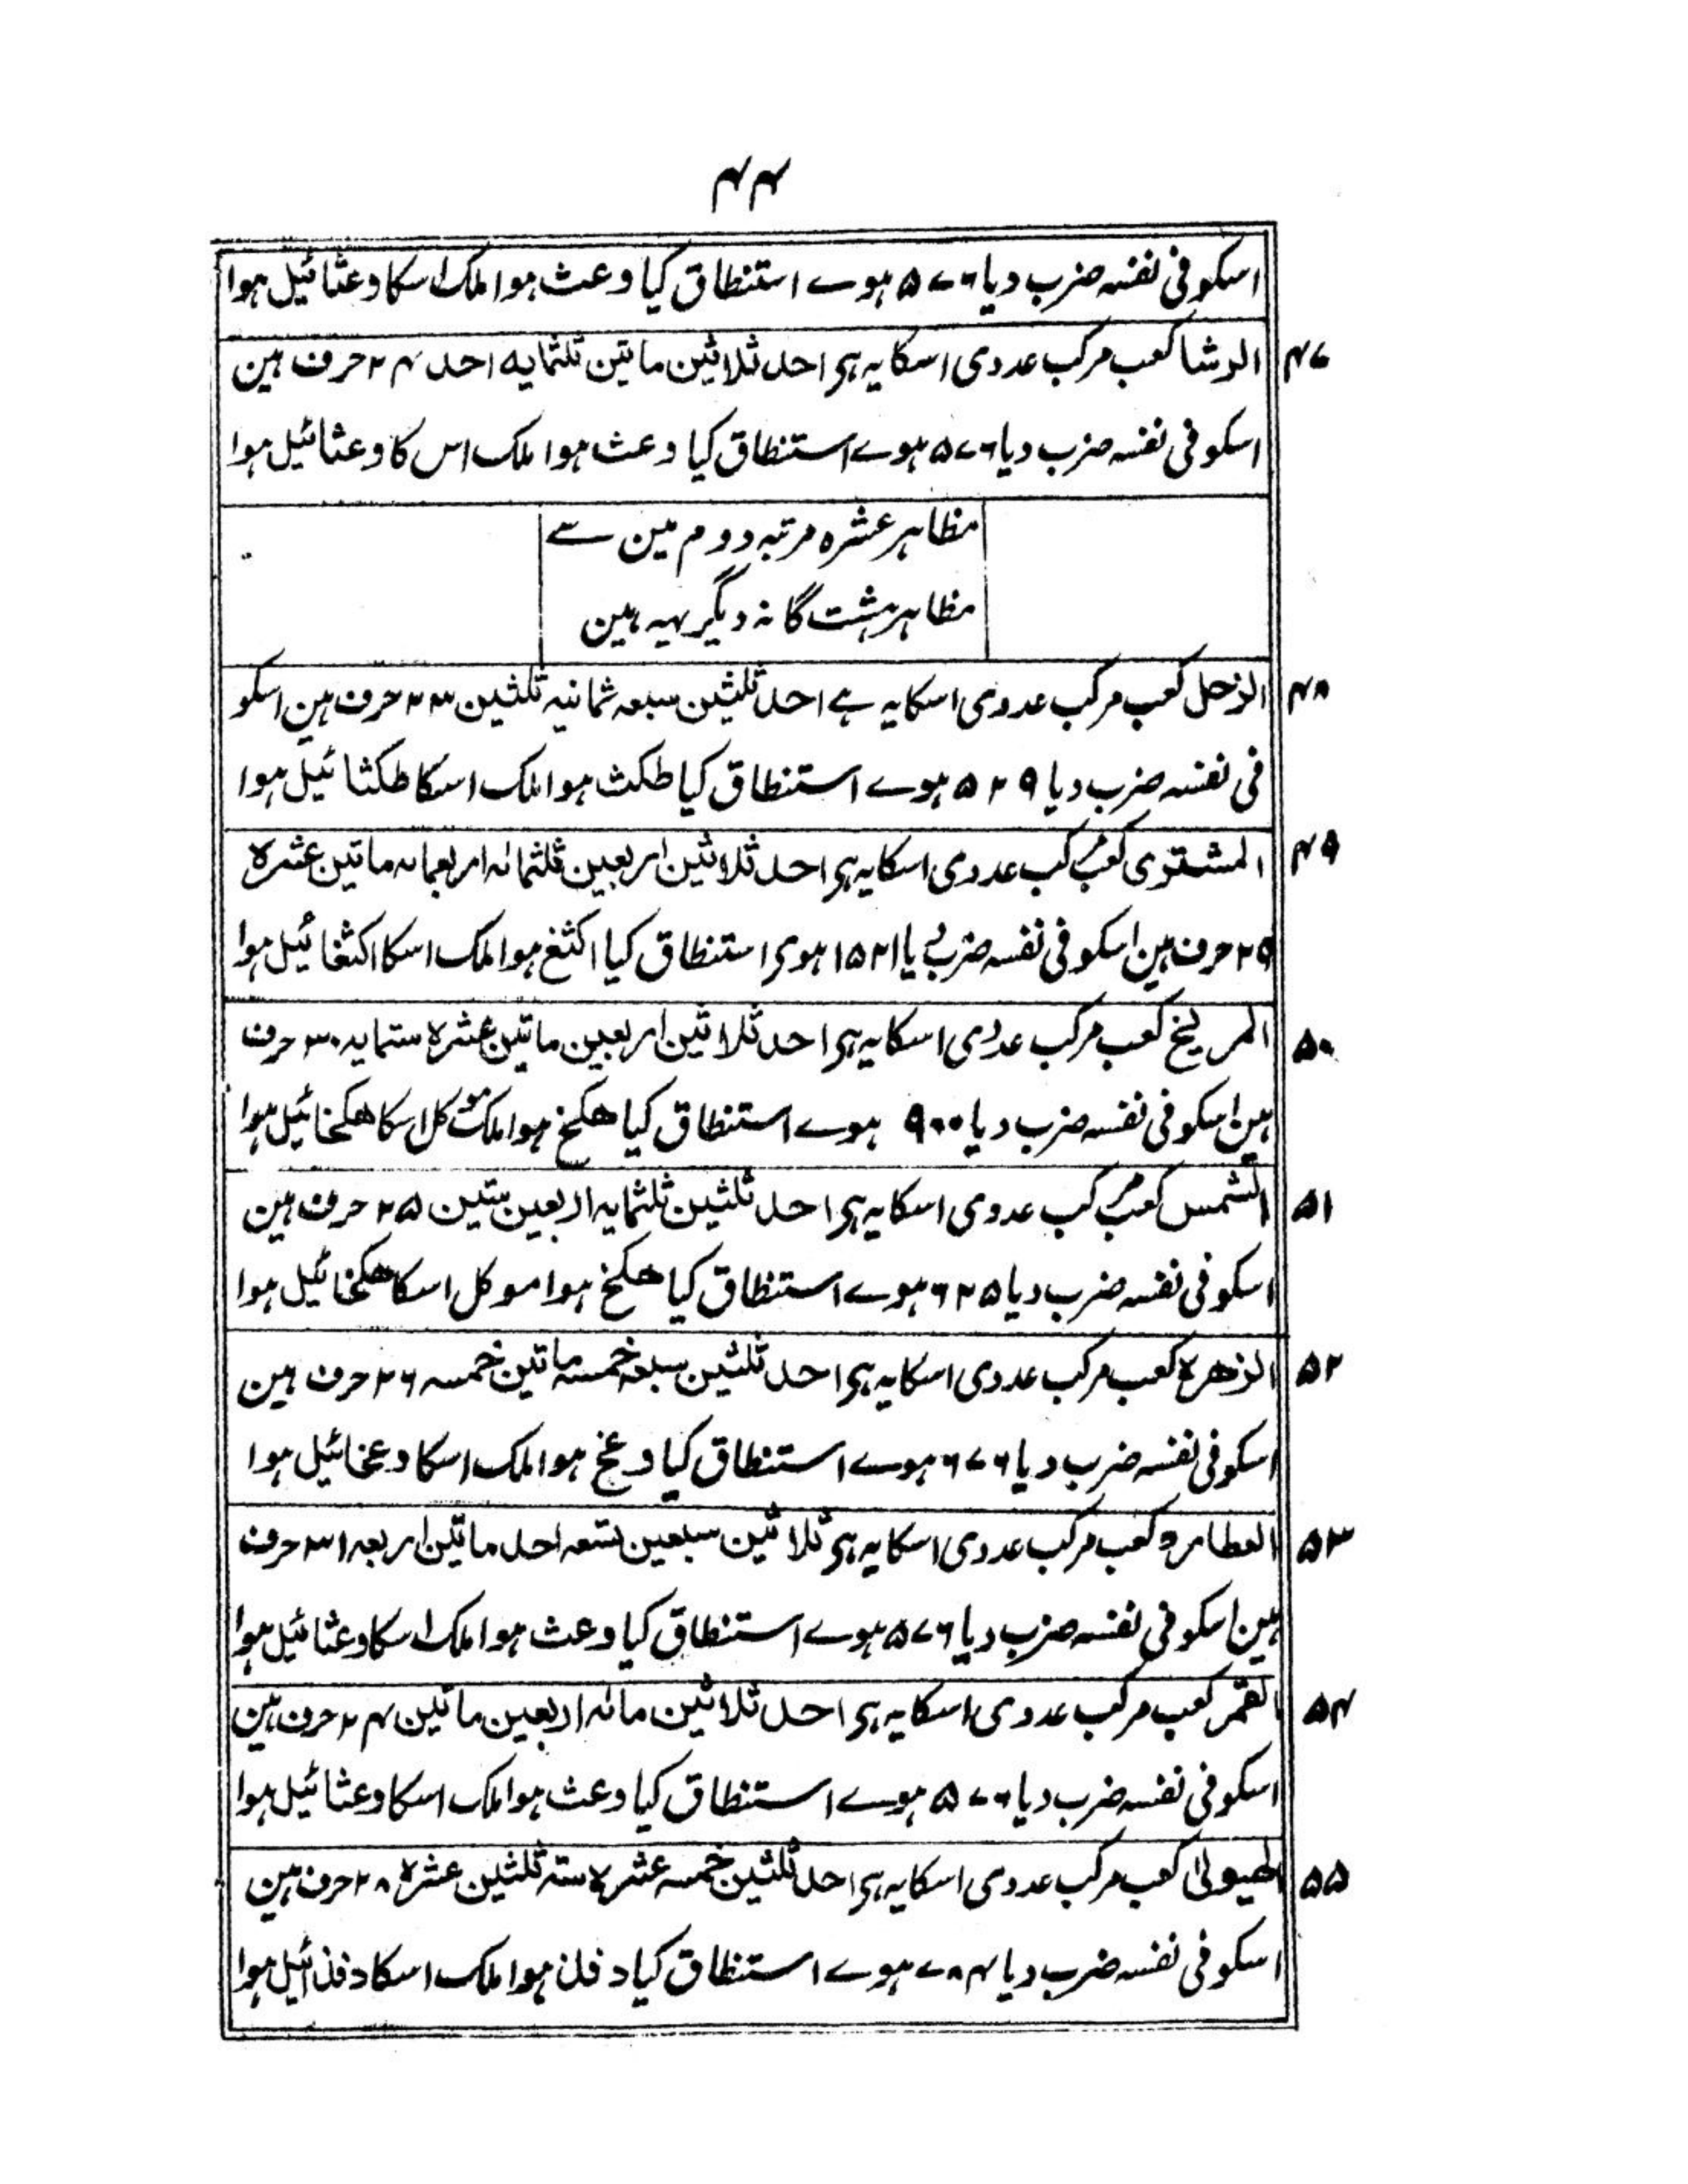 ۴۴
اسکو فی نفسہ ضرب دیا ۵۷۶ ہوے استنطاق کیا وعث ہوا ملک اسکا وعثائیل ہوا
۴۷ الرشا کعب مرکب عددی اسکا یہ ہی احد ثلاثین ماتین ثلثمایہ احد ۲۴ حرف ہین
اسکو فی نفسہ ضرب دیا ۵۷۶ ہوے استنطاق کیا وعث ہوا ملک اس کا وعثائیل ہوا
مظاہر عشرہ مرتبہ دوم مین سے
مظاہر ہشت گانہ دیگر یہہ ہین
۴۸ الزحل کعب مرکب عددی اسکا یہ ہے احد ثلثین سبعہ ثمانیہ ثلثین ۲۳ حرف ہین اسکو
فی نفسہ ضرب دیا ۵۲۹ ہوے استنطاق کیا طکث ہوا ملک اسکا طکثائیل ہوا
۴۹ المشتری کعب مرکب عددی اسکا یہ ہی احد ثلاثین اربعین ثلثمائہ اربعمایہ ماتین عشرہ
۳۹ حرف ہین اسکو فی نفسہ ضرب دیا ۱۵۲۱ ہوی استنطاق کیا اکثغ ہوا ملک اسکا اکثغائیل ہوا
۵۰ المریخ کعب مرکب عددی اسکا یہ ہی احد ثلاثین اربعین ماتین عشرہ ستمایہ ۳۰ حرف
ہین اسکو فی نفسہ ضرب دیا ۹۰۰ ہوے استنطاق کیا ھکخ ہوا ملک موکل اسکا ھکخائیل ہوا
۵۱ الشمس کعب مرکب عددی اسکا یہ ہی احد ثلثین ثلثمایہ اربعین ستین ۲۵ حرف ہین
اسکو فی نفسہ ضرب دیا ۶۲۵ ہوے استنطاق کیا ھکخ ہوا موکل اسکا ھکخائیل ہوا
۵۲ الزھرۃ کعب مرکب عددی اسکا یہ ہی احد ثلثین سبعہ خمسہ ماتین خمسہ ۲۶ حرف ہین
اسکو فی نفسہ ضرب دیا ۶۷۶ ہوے استنطاق کیا وعخ ہوا ملک اسکا وعخائیل ہوا
۵۳ العطارد کعب مرکب عددی اسکا یہ ہی ثلاثین سبعین تسعہ احد ماتین اربعہ ۳۱ حرف
ہین اسکو فی نفسہ ضرب دیا ۵۷۶ ہوے استنطاق کیا وعث ہوا ملک اسکا وعثائیل ہوا
۵۴ القمر کعب مرکب عددی اسکا یہ ہی احد ثلاثین مائہ اربعین ماتین ۲۴ حرف ہین
اسکو فی نفسہ ضرب دیا ۵۷۶ ہوے استنطاق کیا وعث ہوا ملک اسکا وعثائیل ہوا
۵۵ الھیولیٰ کعب مرکب عددی اسکا یہ ہی احد ثلثین خمسہ عشرہ ستہ ثلثین عشرہ ۲۸ حرف ہین
اسکو فی نفسہ ضرب دیا ۷۸۴ ہوے استنطاق کیا دفذ ہوا ملک اسکا دفذائیل ہوا